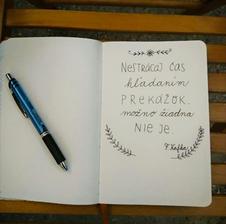 NESTRÁCAJ ČAS
hľadaním
PREKÁŽOK.
možno žiadna
NIE JE.
F. Kafka